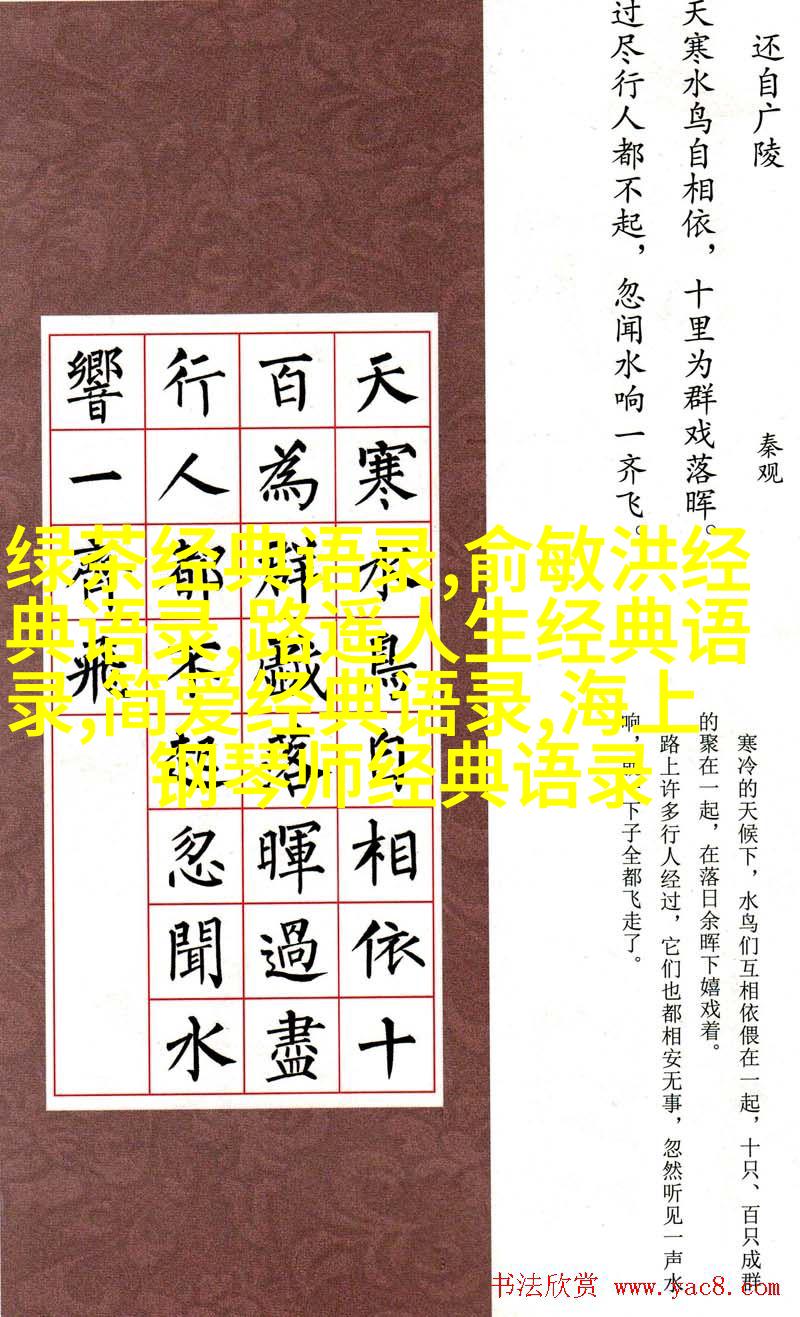 还自广陵
秦观
天寒水鸟自相依，十里为群戏落晖。
过尽行人都不起，忽闻水响一齐飞。
天寒水鳥自相依十
百為群戲落暉過盡
行人都不起忽聞水
響一齊飛
绿茶经典语录,俞敏洪经
典语录,路遥人生经典语
录,简爱经典语录,海上
钢琴师经典语录
寒冷的天候下，水鸟们互相依偎在一起，十只、百只成群
的聚在一起，在落日余晖下嬉戏着。
路上许多行人经过，它们也都相安无事，忽然听见一声水
响，下子全都飞走了。
书法欣赏 www.yac8.com